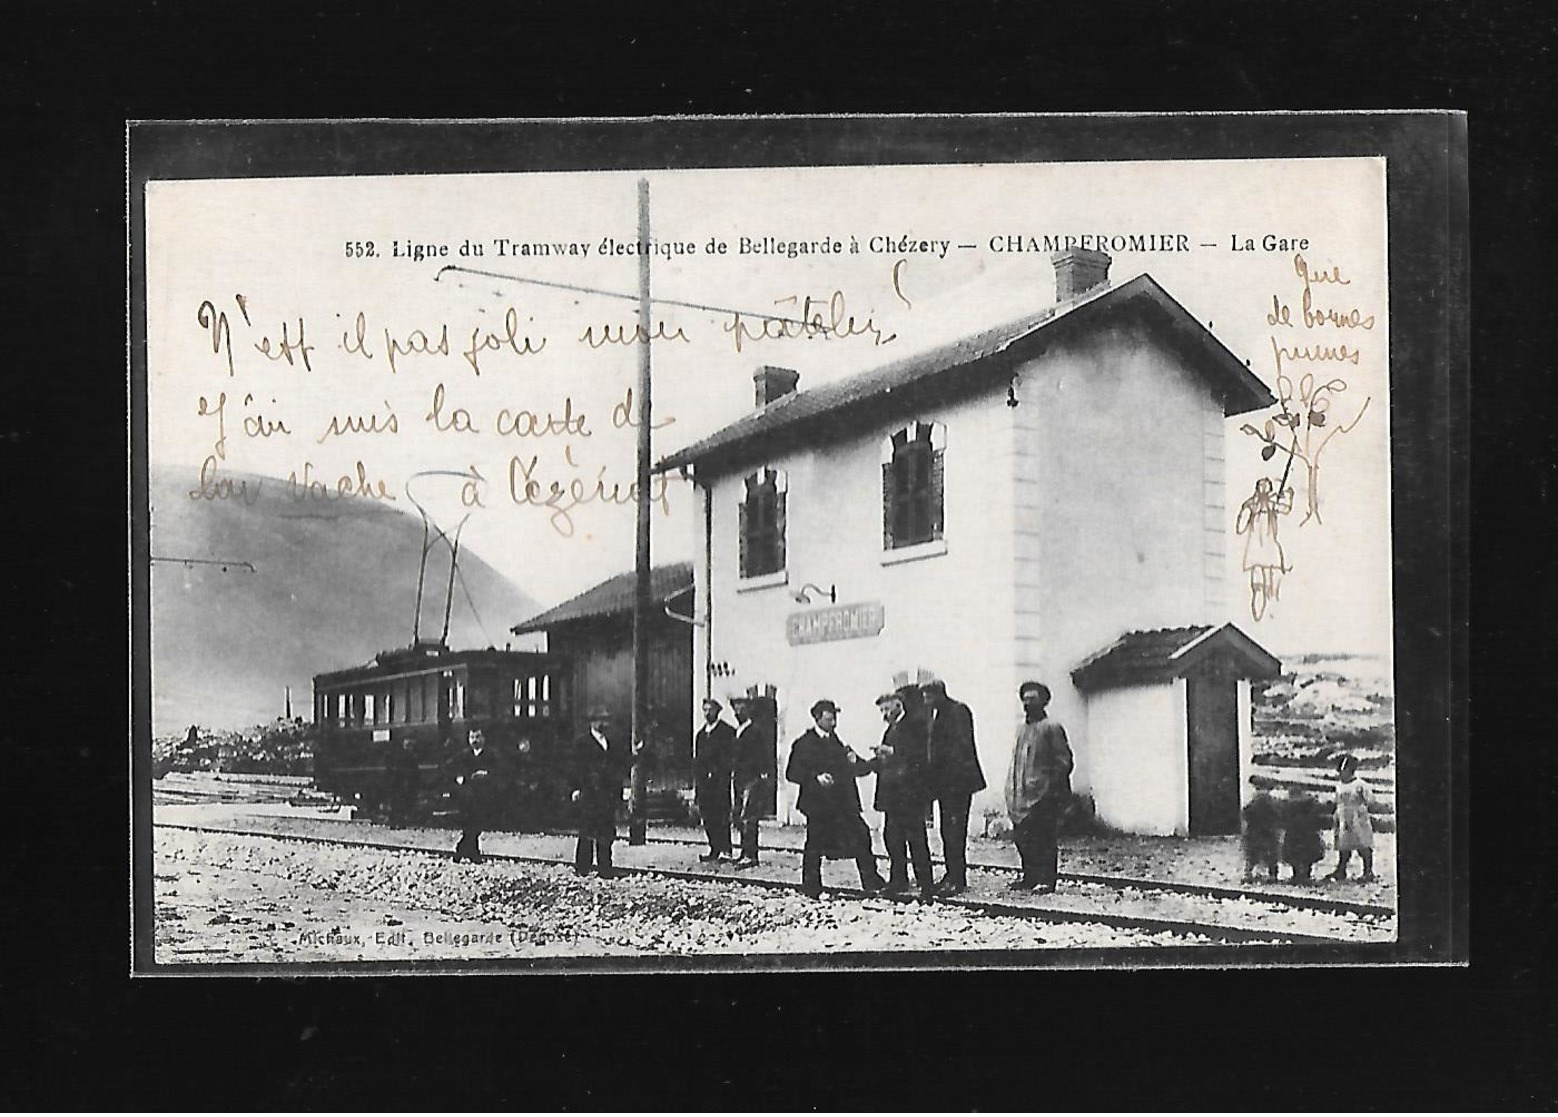 552. Ligne du Tramway électrique de Bellegarde à Chézery — CHAMPFROMIER — La Gare
N'est il pas joli mon pâtelin
J'ai mis la carte de
la vache à Cézériat
Que
de bonnes
prunes
CHAMPFROMIER
Michaux, Edit. Bellegarde (Déposé)